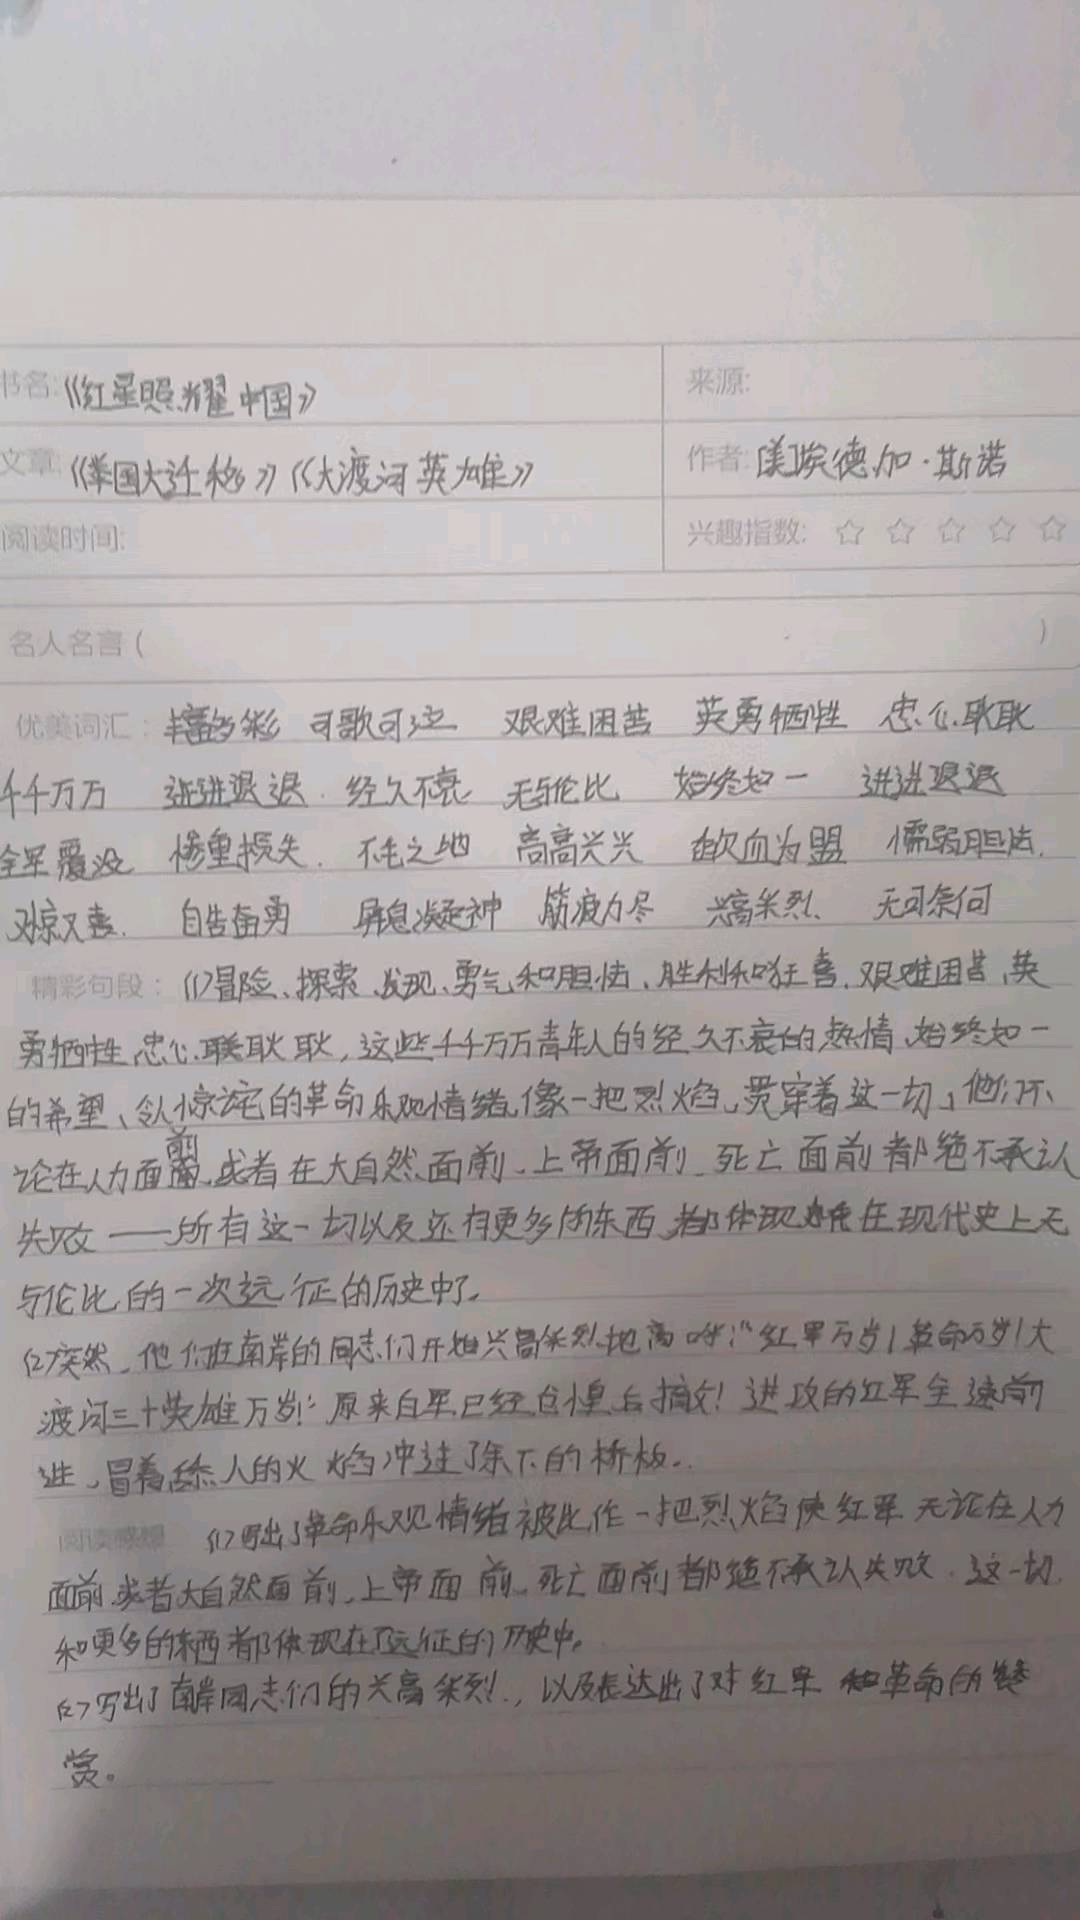 书名:《红星照耀中国》 来源:
文章:《举国大迁移》《大渡河英雄》 作者:[美]埃德加·斯诺
阅读时间: 兴趣指数: ☆ ☆ ☆ ☆ ☆
名人名言( )
优美词汇: 丰富多彩 可歌可泣 艰难困苦 英勇牺牲 忠心耿耿
千千万万 进进退退. 经久不衰 无与伦比 始终如一 进进退退
全军覆没 惨重损失. 不毛之地 高高兴兴 歃血为盟 懦弱胆怯.
又惊又喜. 自告奋勇 屏息凝神 筋疲力尽 兴高采烈. 无可奈何
精彩句段: (1)冒险、探索、发现、勇气和胆怯、胜利和狂喜、艰难困苦、英
勇牺牲、忠心耿耿,这些千千万万青年人的经久不衰的热情、始终如一
的希望、令人惊诧的革命乐观情绪,像一把烈焰,贯穿着这一切,他们不
论在人力面前,或者在大自然面前,上帝面前,死亡面前都绝不承认
失败——所有这一切以及还有更多的东西,都体现在现代史上无
与伦比的一次远征的历史中了。
(2)突然,他们在南岸的同志们开始兴高采烈地高呼:“红军万岁!革命万岁!大
渡河三十英雄万岁!”原来白军已经仓惶后撤!进攻的红军全速前
进,冒着舔人的火焰冲过了余下的桥板..
阅读感想 (1)写出了革命乐观情绪被比作一把烈焰使红军无论在人力
面前.或者大自然面前,上帝面前,死亡面前都绝不承认失败.这一切.
和更多的东西都体现在了远征的历史中。
(2)写出了南岸同志们的兴高采烈.,以及表达出了对红军和革命的赞
赏。